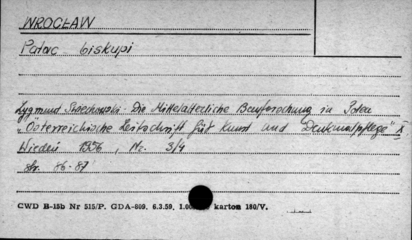 WROCŁAW
Pałac biskupi
Zygmunt Świechowski - Die Mittelalterliche Bauforschung in Polen
"Österreichische Zeitschrift für Kunst und Denkmalpflege" X
Wiedeń 1956, Nr. 3/4
str. 86-87
CWD H-15b Nr 515/P. GDA-809. 6.3.59. karton 180/V.